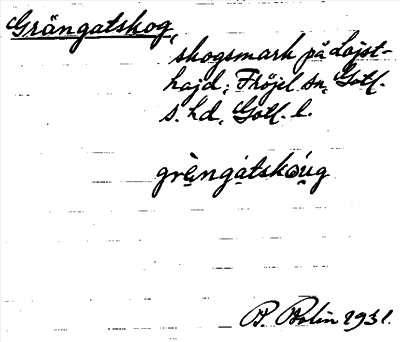 Grängatskog,
skogsmark på Lojst-
hajd, Fröjel sn, Gotl.
s. hd, Gotl. l.
grèngatskòug
P. Bolin 1931.